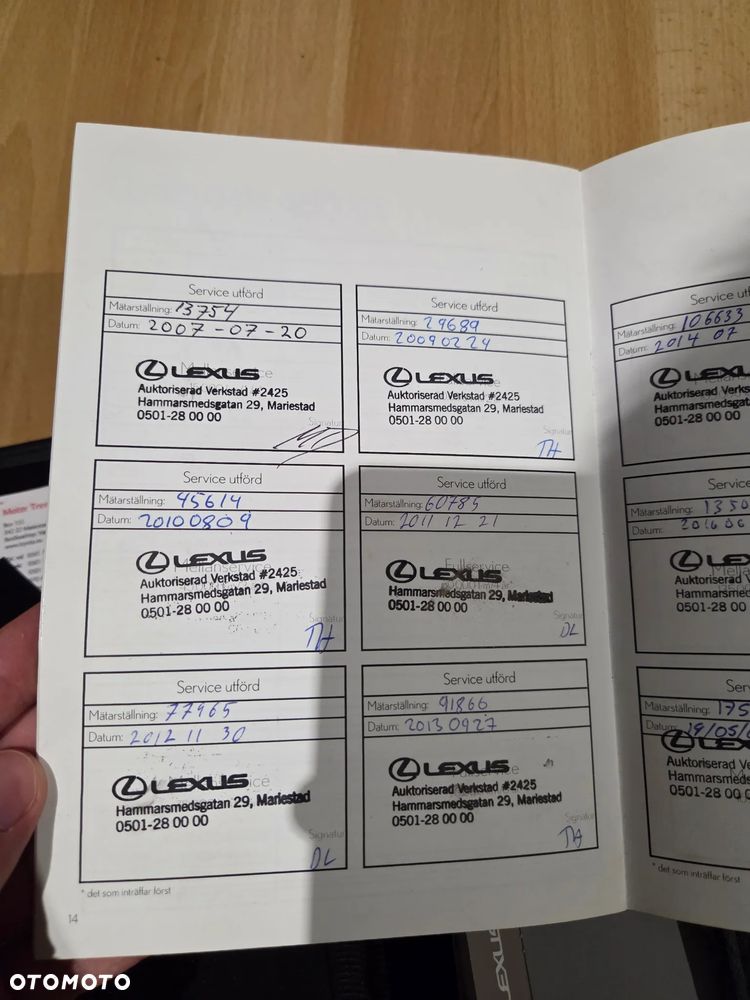 Service utförd
Mätarställning: 13754
Datum: 2007-07-20
LEXUS
Auktoriserad Verkstad #2425
Hammarsmedsgatan 29, Mariestad
0501-28 00 00
Service utförd
Mätarställning: 29689
Datum: 20090224
LEXUS
Auktoriserad Verkstad #2425
Hammarsmedsgatan 29, Mariestad
0501-28 00 00
Signatur
TH
Service utförd
Mätarställning: 45614
Datum: 20100809
Mellanservice
LEXUS
Auktoriserad Verkstad #2425
Hammarsmedsgatan 29, Mariestad
0501-28 00 00
TH
Service utförd
Mätarställning: 60785
Datum: 2011 12 21
Fullservice
LEXUS
Hammarsmedsgatan 29, Mariestad
0501-28 00 00
Signatur
DL
Service utförd
Mätarställning: 77965
Datum: 2012 11 30
LEXUS
Hammarsmedsgatan 29, Mariestad
0501-28 00 00
Signatur
DL
Service utförd
Mätarställning: 91866
Datum: 20130927
LEXUS
Auktoriserad Verkstad #2425
Hammarsmedsgatan 29, Mariestad
0501-28 00 00
Signatur
TH
* det som inträffar först
14
Service
Mätarställning: 106633
Datum: 2014 07
LEXUS
Auktoriserad Verks
Hammarsmedsgat
0501-28 00 00
Service
Mätarställning: 1350
Datum: 2016 06
LEX
Auktoriserad V
Hammarsmedsg
0501-28 00 00
Ser
Mätarställning: 175
Datum: 19/05/0
LEX
Auktoriserad Ve
Hammarsmeds
0501-28 00 00
* det som inträffar först
OTOMOTO